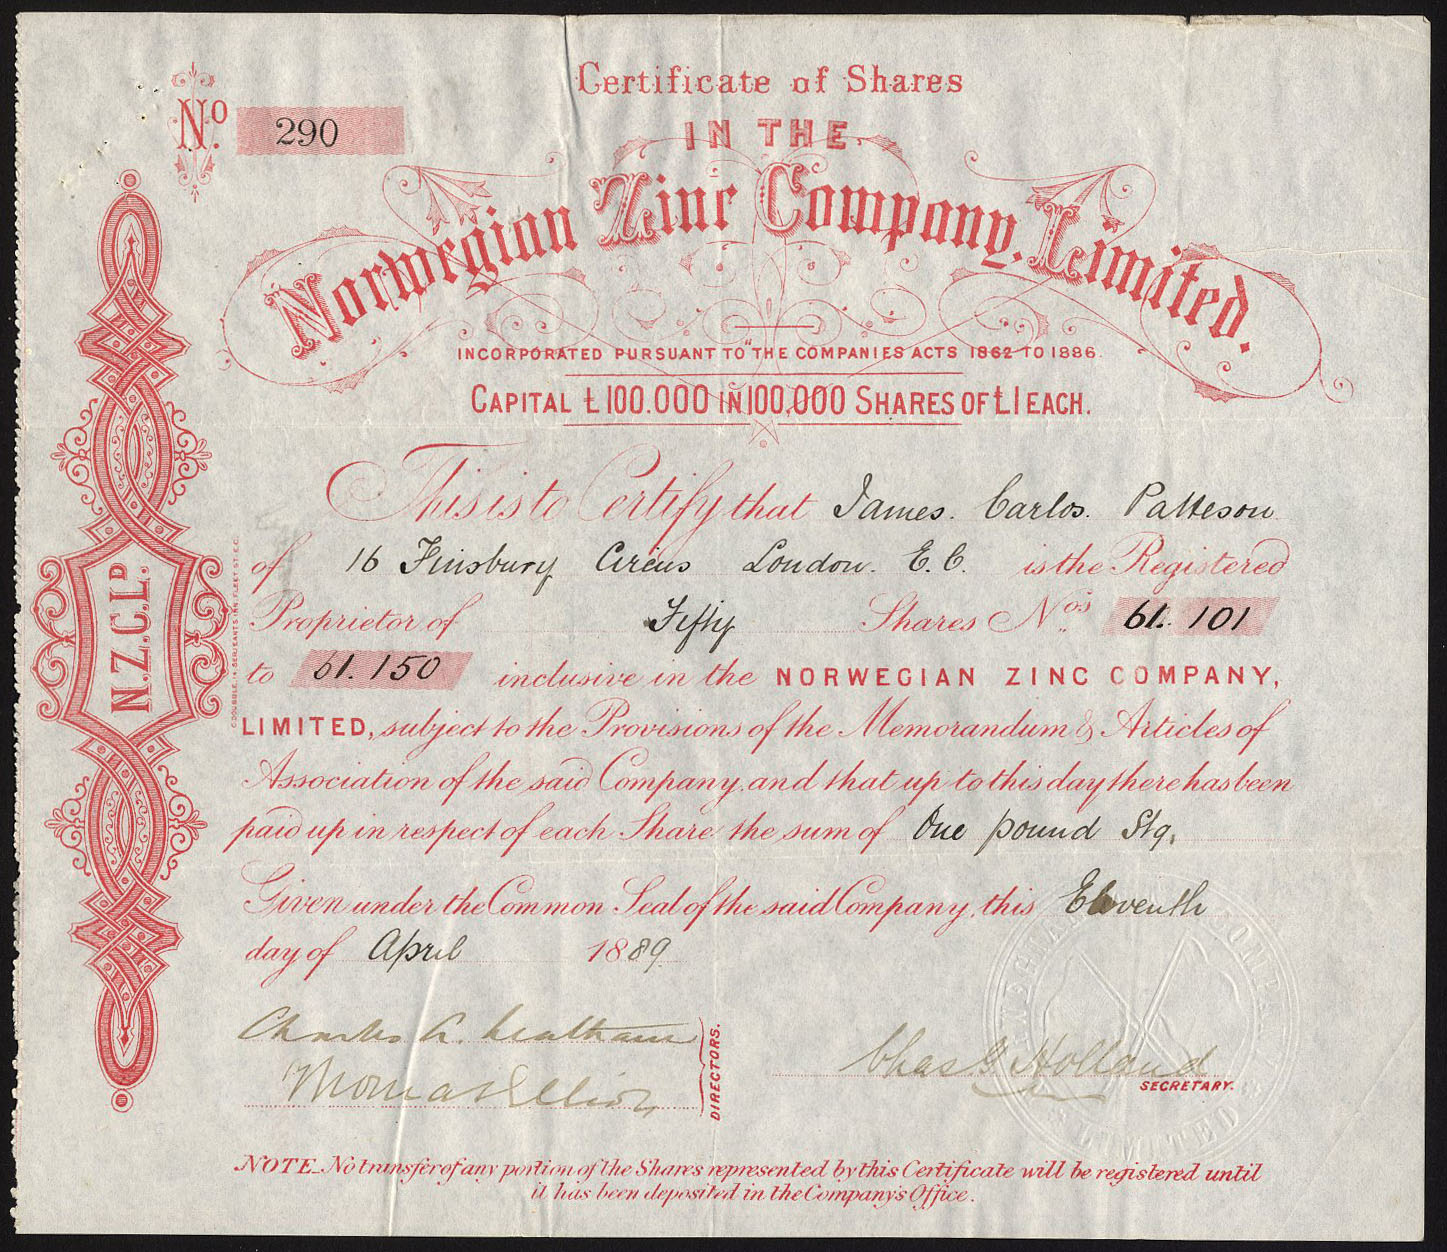 Certificate of Shares
No. 290
IN THE
Norwegian Zinc Company, Limited.
INCORPORATED PURSUANT TO "THE COMPANIES ACTS 1862 TO 1886.
CAPITAL £100.000 IN 100,000 SHARES OF £1 EACH.
This is to Certify that James. Carlos. Patteson
of 16 Finsbury Circus London. E.C. is the Registered
Proprietor of Fifty Shares Nos. 61. 101
to 61. 150 inclusive in the NORWEGIAN ZINC COMPANY,
LIMITED, subject to the Provisions of the Memorandum & Articles of
Association of the said Company, and that up to this day there has been
paid up in respect of each Share the sum of One pound Stg.
Given under the Common Seal of the said Company, this Eleventh
day of April 1889
Charles A.
Thomas Elliot
DIRECTORS.
Chas G Holland
SECRETARY.
NOTE_No transfer of any portion of the Shares represented by this Certificate will be registered until
it has been deposited in the Company's Office.
N.Z.C.LD.
LIMITED